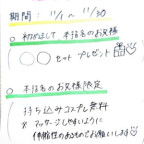 期間：11/1 〜 11/30
○ 初めまして本指名のお客様
(○○セットプレゼント
○ 本指名のお客様限定
持ち込みコスプレ無料
※マッサージしやすいように
伸縮性のあるものでお願いします